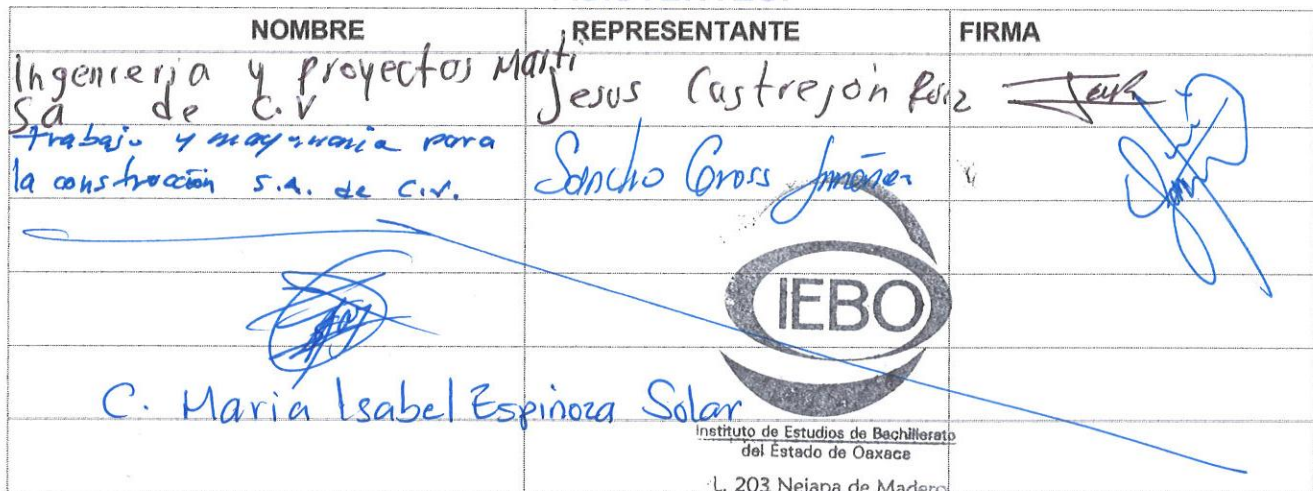 NOMBRE REPRESENTANTE FIRMA
Ingenieria y proyectos Marti Jesus Castrejón Ruiz
SA de C.V
trabajo y maquinaria para
la construcción S.A. de C.V. Sancho Gross Jiménez
IEBO
C. Maria Isabel Espinoza Solar
Instituto de Estudios de Bachillerato
del Estado de Oaxaca
L. 203 Nejapa de Madero